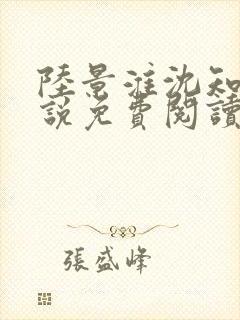 陸景淮沈知
說免費閱讀
張盛峰